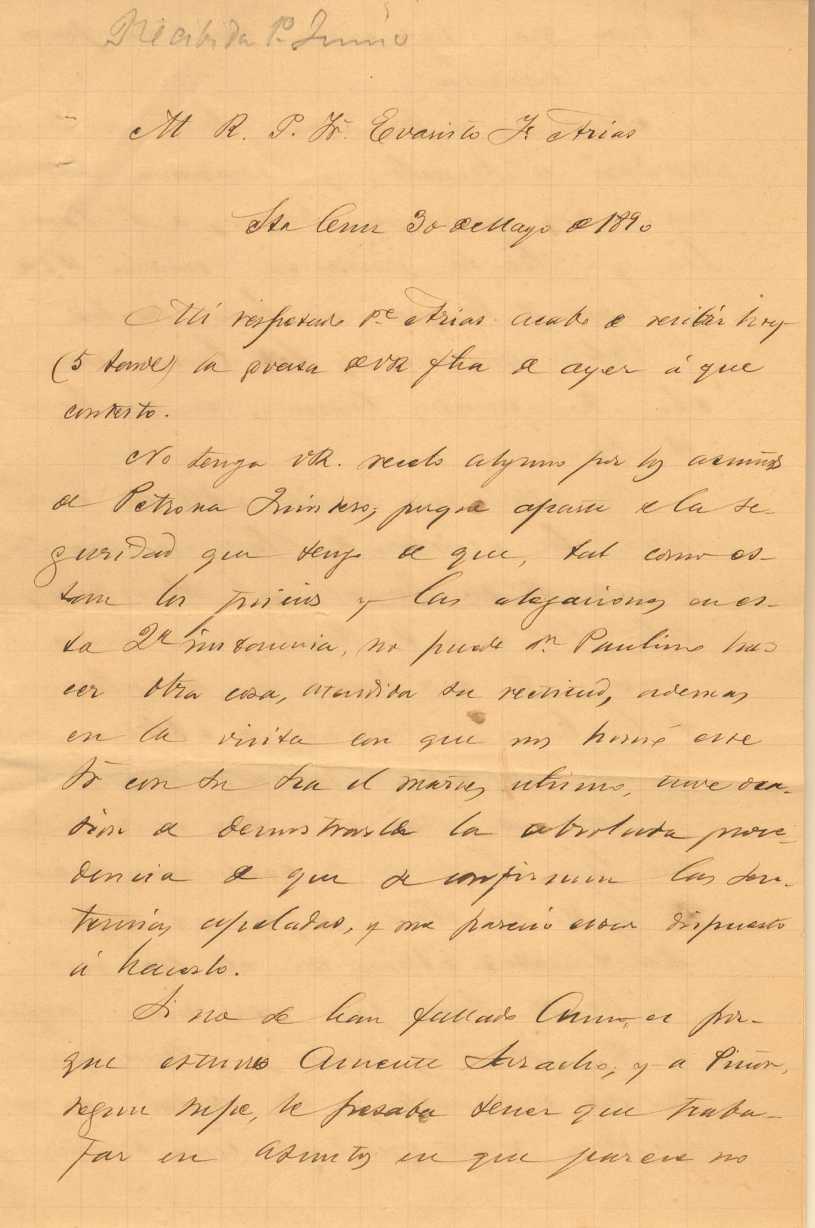 Recibida 1º Junio
M R. P. Fr. Evaristo F. Arias
Sta Cruz 30 de Mayo de 1890
Mi respetado Pe Arias: acabo de recibir hoy
(5 tarde) la grata de VR fha de ayer á que
contesto.
No tenga VR. recelo alguno por los asuntos
de Petrona Quintero; porque aparte de la se-
guridad que tengo de que, tal como es-
tan los juicios y las alegaciones en es-
ta 2ª instancia, no puede Dn Paulino ha-
cer otra cosa, atendida su rectitud, ademas
en la visita con que nos honró este
Sr con su Sra el martes ultimo, tuve oca-
sion de demostrarle la absoluta proce-
dencia de que se confirmen las sen-
tencias apeladas, y me pareció estar dispuesto
á hacerlo.
Si no se han fallado aun, es por-
que estuvo ausente; y a
segun supe, le pesaba tener que traba-
jar en asuntos en que parece no